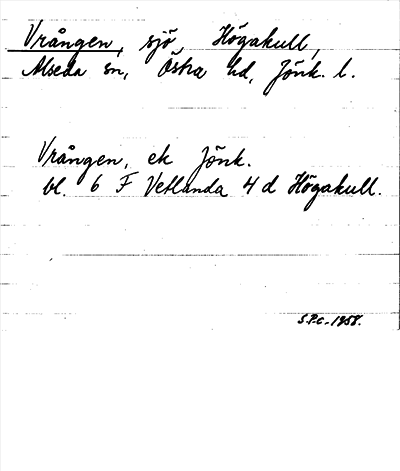 Vrången, sjö, Högakull,
Alseda sn, Östra hd, Jönk. l.
Vrången, ek Jönk.
bl. 6 F Vetlanda 4 d Högakull.
S.P.C. 1958.